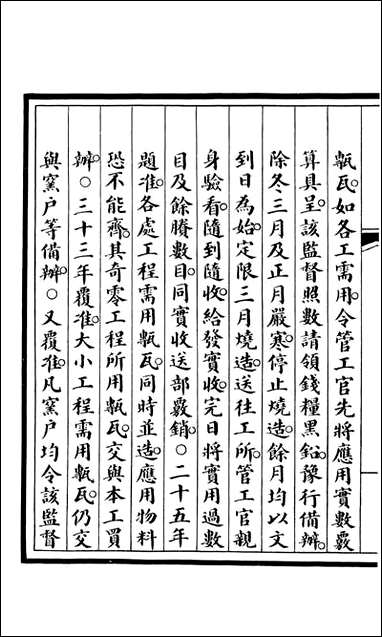 甎瓦。如各工需用。令管工官先將應用實數覈
算具呈。該監督照數請領錢糧黑鉛。豫行備辦。
除冬三月及正月嚴寒。停止燒造。餘月均以文
到日為始。定限三月燒造。送往工所。管工官親
身驗看。隨到隨收。給發實收。完日將實用過數
目及餘賸數目。同實收送部覈銷。○二十五年
題准。各處工程需用甎瓦。同時並造。應用物料
恐不能齊。其奇零工程所用甎瓦。交與本工買
辦。○三十三年覆准。大小工程需用甎瓦。仍交
與窯户等備辦。○又覆准。凡窯户均令該監督